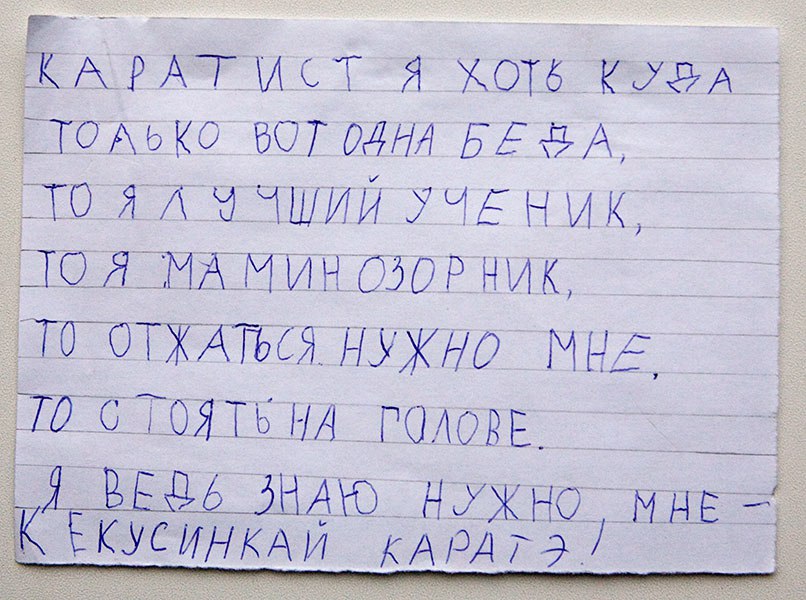 КАРАТИСТ Я ХОТЬ КУДА
ТОЛЬКО ВОТ ОДНА БЕДА,
ТО Я ЛУЧШИЙ УЧЕНИК,
ТО Я МАМИН ОЗОРНИК,
ТО ОТЖАТЬСЯ НУЖНО МНЕ,
ТО СТОЯТЬ НА ГОЛОВЕ.
Я ВЕДЬ ЗНАЮ НУЖНО, МНЕ –
КЕКУСИНКАЙ КАРАТЭ!